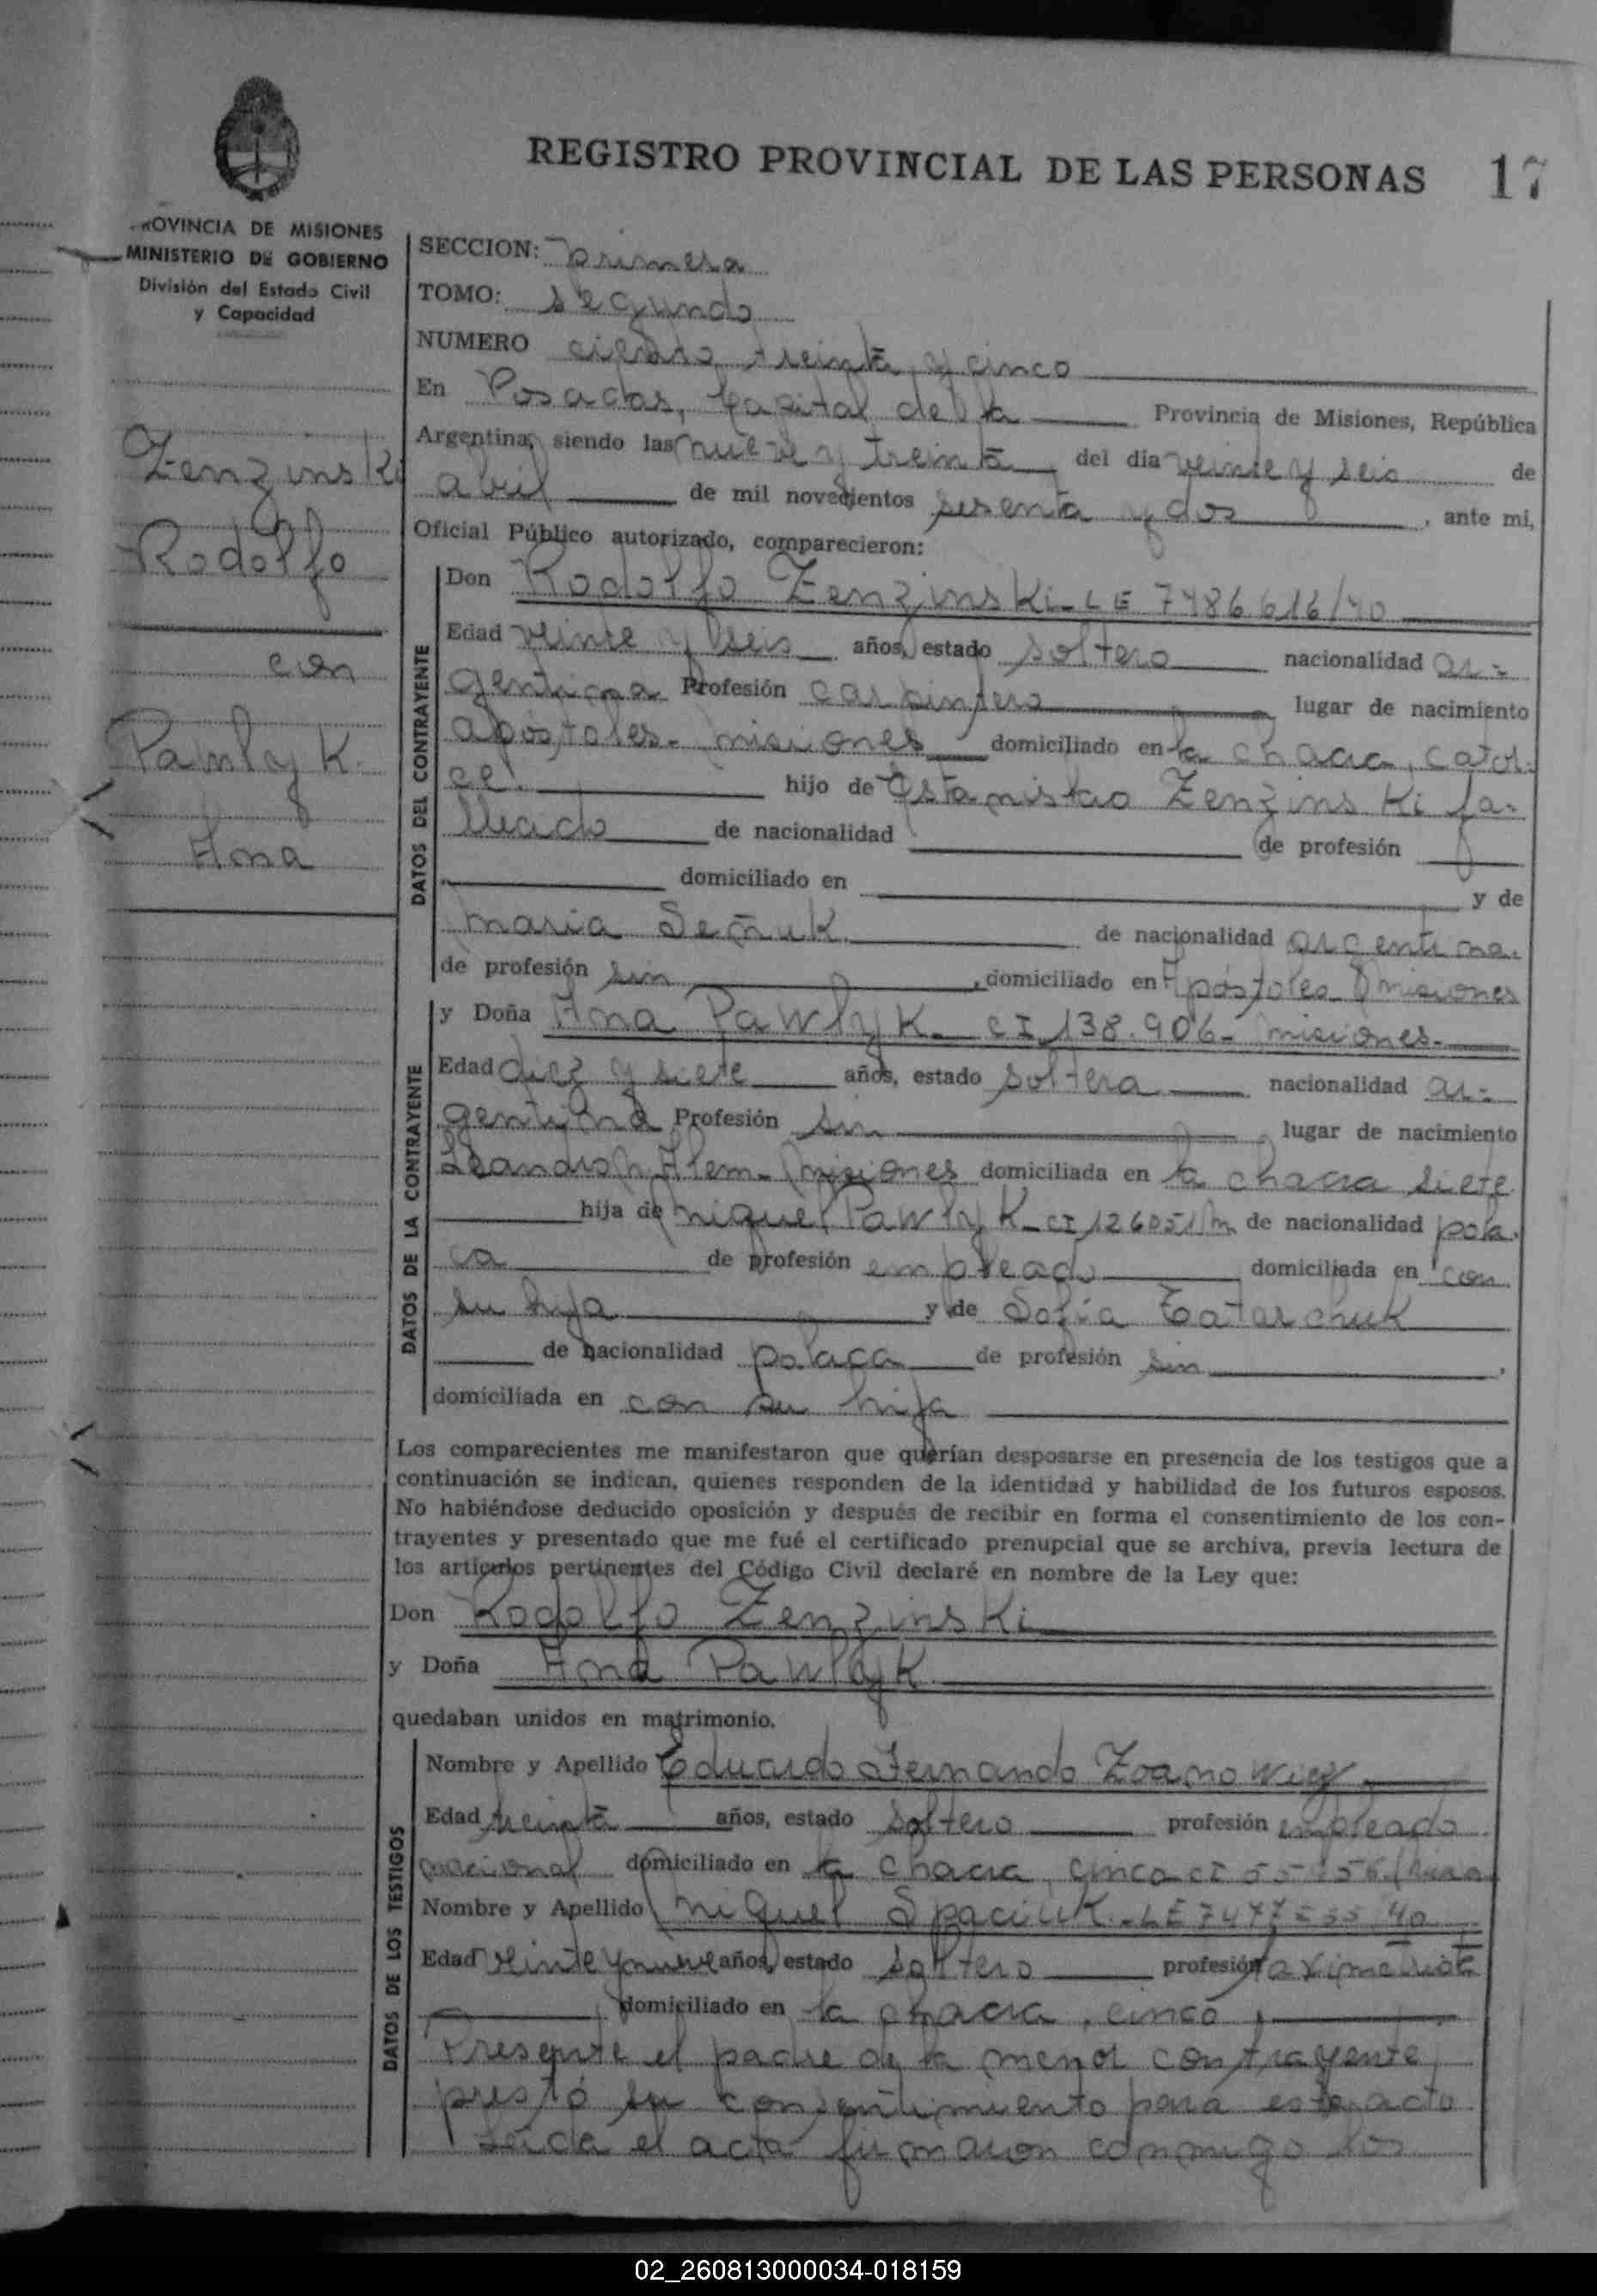 REGISTRO PROVINCIAL DE LAS PERSONAS 17
PROVINCIA DE MISIONES
MINISTERIO DE GOBIERNO
División del Estado Civil
y Capacidad
Zenzinski
Rodolfo
con
Pawlyk
Ana
SECCION: primera
TOMO: segundo
NUMERO ciento treinta y cinco
En Posadas, Capital de la Provincia de Misiones, República
Argentina, siendo las nueve y treinta del día veinte y seis de
abril de mil novecientos sesenta y dos, ante mi,
Oficial Público autorizado, comparecieron:
DATOS DEL CONTRAYENTE
Don Rodolfo Zenzinski - LE 7486616/40
Edad veinte y seis años, estado soltero nacionalidad ar-
gentina Profesión carpintero lugar de nacimiento
apóstoles - misiones domiciliado en la chacra, cator-
ce. hijo de Estanislao Zenzinski fa-
llecido de nacionalidad de profesión
domiciliado en y de
maria Semuk de nacionalidad argentina.
de profesión sin, domiciliado en Apóstoles Misiones
DATOS DE LA CONTRAYENTE
y Doña Ana Pawlyk - CI 138.906 - misiones.
Edad diez y siete años, estado soltera nacionalidad ar-
gentina Profesión sin lugar de nacimiento
Leandro N. Alem - Misiones domiciliada en la chacra siete
hija de Miguel Pawlyk - CI 126051/M de nacionalidad pola-
ca de profesión empleado domiciliada en con
su hija y de Sofia Tatarchuk
de nacionalidad polaca de profesión sin,
domiciliada en con su hija
Los comparecientes me manifestaron que querían desposarse en presencia de los testigos que a
continuación se indican, quienes responden de la identidad y habilidad de los futuros esposos.
No habiéndose deducido oposición y después de recibir en forma el consentimiento de los con-
trayentes y presentado que me fué el certificado prenupcial que se archiva, previa lectura de
los artículos pertinentes del Código Civil declaré en nombre de la Ley que:
Don Rodolfo Zenzinski
y Doña Ana Pawlyk
quedaban unidos en matrimonio.
DATOS DE LOS TESTIGOS
Nombre y Apellido Eduardo Fernando
Edad treinta años, estado soltero profesión empleado
nacional domiciliado en la chacra, cinco CI
Nombre y Apellido Miguel Spaciuk - LE
Edad veinte y nueve años, estado soltero profesión taximetrista
domiciliado en la chacra, cinco,
Presente el padre de la menor contrayente,
prestó su consentimiento para este acto
Leida el acta firmaron conmigo los
02_260813000034-018159